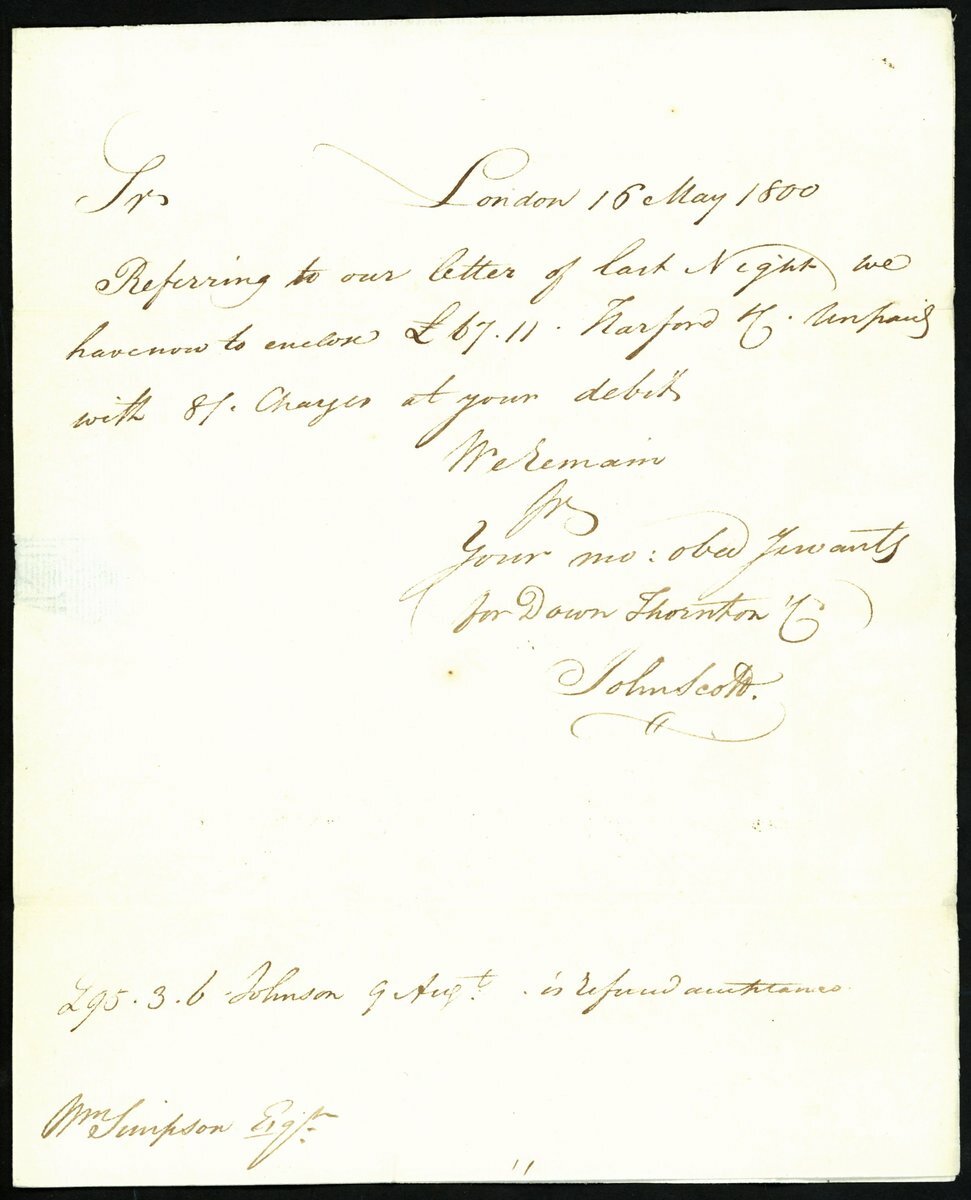 Sr London 16 May 1800
Referring to our letter of last Night we
have now to enclose £67.11. Harford & C. Unpaid
with 8/. Charges at your debit
We Remain
Sr
Your mo: obed Servants
for Down Thornton & C
John Scott.
£95.3.6 Johnson 9 Augt. is refused acceptance
Wm Simpson Esqr.